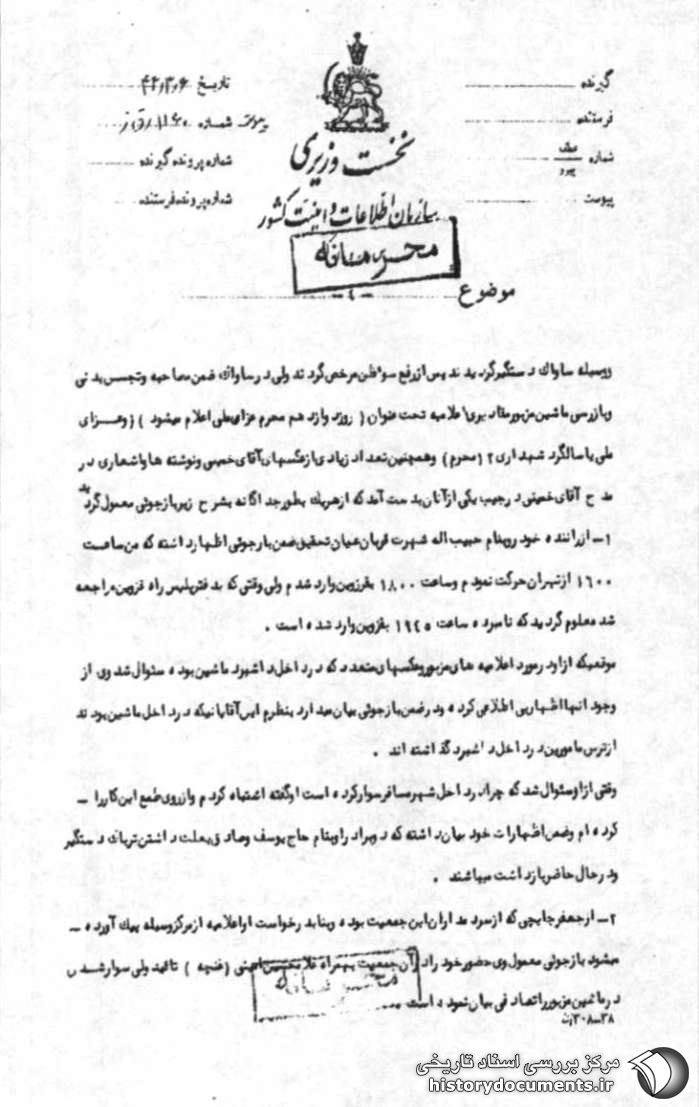 گیرنده
فرستنده
شماره عطف پیرو
پیوست
تاریخ
شماره
شماره پرونده گیرنده
شماره پرونده فرستنده
نخست وزیری
سازمان اطلاعات و امنیت کشور
محرمانه
موضوع
-٤-
ووسیله ساواك دستگیر گردیدند پس از رفع سوءظن مرخص گردند ولی در ساواك ضمن مصاحبه و تجسس بدنی
و بازرسی ماشین مزبور مقادیری اعلامیه تحت عنوان ( روز دوازدهم محرم عزای ملی اعلام میشود ) ( و عــزای
ملی یا سالگرد شهدای ١٢ محرم ) و همچنین تعداد زیادی از عکسهای آقای خمینی و نوشته ها و اشعاری در
مدح آقای خمینی در جیب یکی از آنان بدست آمد که از هریك بطور جداگانه بشرح زیر بازجوئی معمول گردید
١- از راننده خودرو بنام حبیب اله شهرت قربان عیان تحقیق ضمن بازجوئی اظهار داشته که من ساعت
١٦٠٠ از تهران حرکت نمودم و ساعت ١٨٠٠ بقزوین وارد شدم ولی وقتی که بدفتر پلیس راه قزوین مراجعه
شد معلوم گردید که نامبرده ساعت ١٩٤٥ بقزوین وارد شده است .
موقعیکه از او در مورد اعلامیه های مزبور و عکسهای متعدد که در داخل داشبرد ماشین بوده سئوال شد وی از
وجود آنها اظهار بی اطلاعی کرده و در ضمن بازجوئی بیان میدارد بنظرم این آقایانیکه در داخل ماشین بودند
از ترس مامورین در داخل داشبرد گذاشته اند .
وقتی از او سئوال شد که چرا در داخل شهر مسافر سوار کرده است او گفته اشتباه کردم و از روی طمع این کار را -
کرده ام و ضمن اظهارات خود بیان داشته که دو برادر او بنام حاج یوسف و صادق بعلت داشتن تریاك دستگیر
و در حال حاضر بازداشت میباشند .
٢- از جعفر چایچی که از سردمداران این جمعیت بوده و بنا بدرخواست او اعلامیه از مرکز وسیله پیك آورده -
میشود بازجوئی معمول وی حضور خود را در آن جمعیت بهمراه غلامحسین امینی ( غنچه ) تائید ولی سوار شدن
در ماشین مزبور را تصادفی بیان نموده است
محرمانه
مرکز بررسی اسناد تاریخی
historydocuments.ir